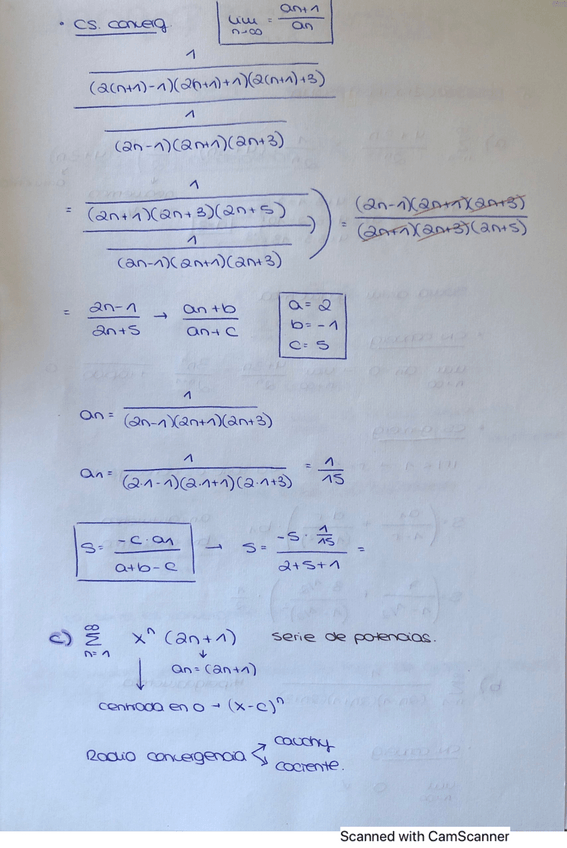 • CS. converg lim n→∞ = an+1 / an
1 / (2(n+1)-1)(2n+1)+1)(2(n+1)+3)
1 / (2n-1)(2n+1)(2n+3)
= 1 / (2n+1)(2n+3)(2n+5) / 1 / (2n-1)(2n+1)(2n+3) ) = (2n-1)(2n+1)(2n+3) / (2n+1)(2n+3)(2n+5)
= 2n-1 / 2n+5 → an+b / an+c
a= 2
b= -1
c= 5
an = 1 / (2n-1)(2n+1)(2n+3)
a1 = 1 / (2·1-1)(2·1+1)(2·1+3) = 1/15
S= -c·a1 / a+b-c → S= -5· 1/15 / 2+5+1 =
c) ∞ Σ n=1 x^n (2n+1) serie de potencias.
↓ ↓
an=(2n+1)
centrada en 0 → (x-c)^n
Radio convergencia < cauchy
cociente.
Scanned with CamScanner